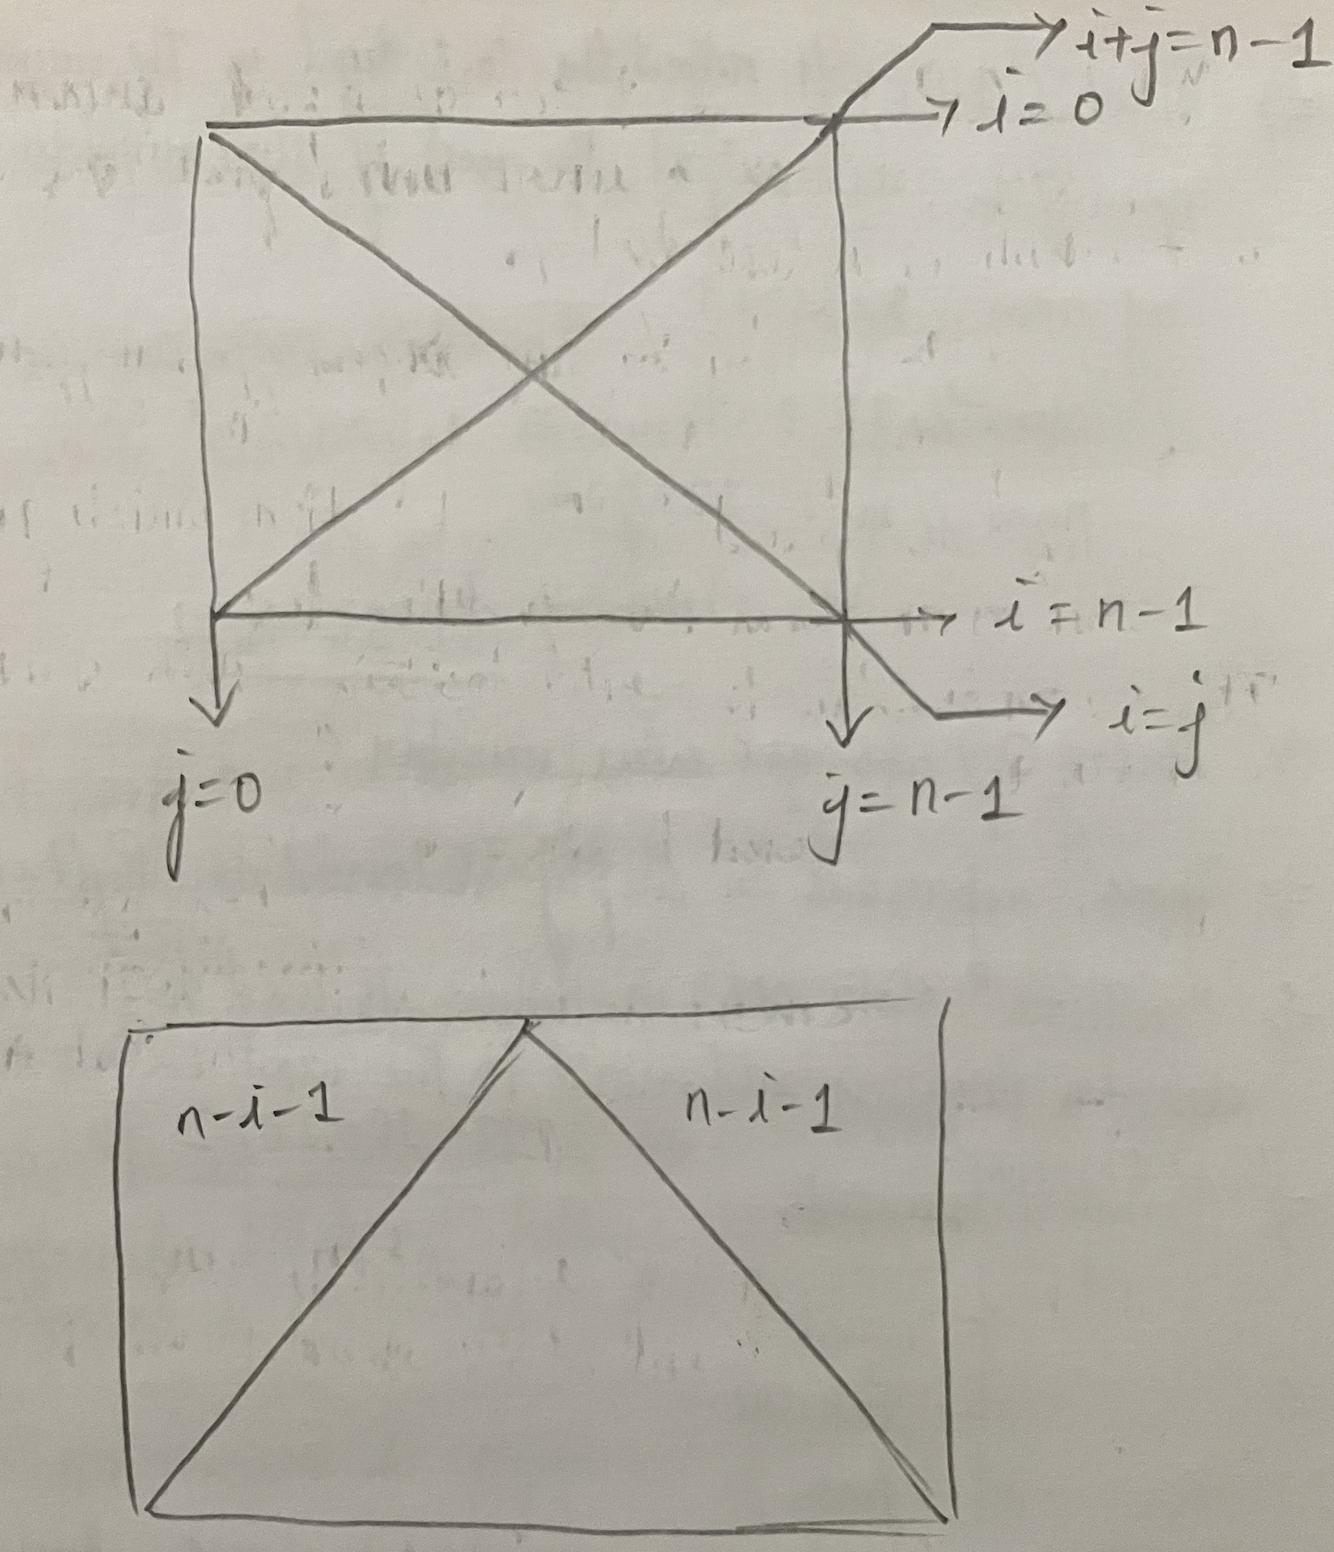 i+j=n-1
i=0
i=n-1
i=j
j=0
j=n-1
n-i-1
n-i-1